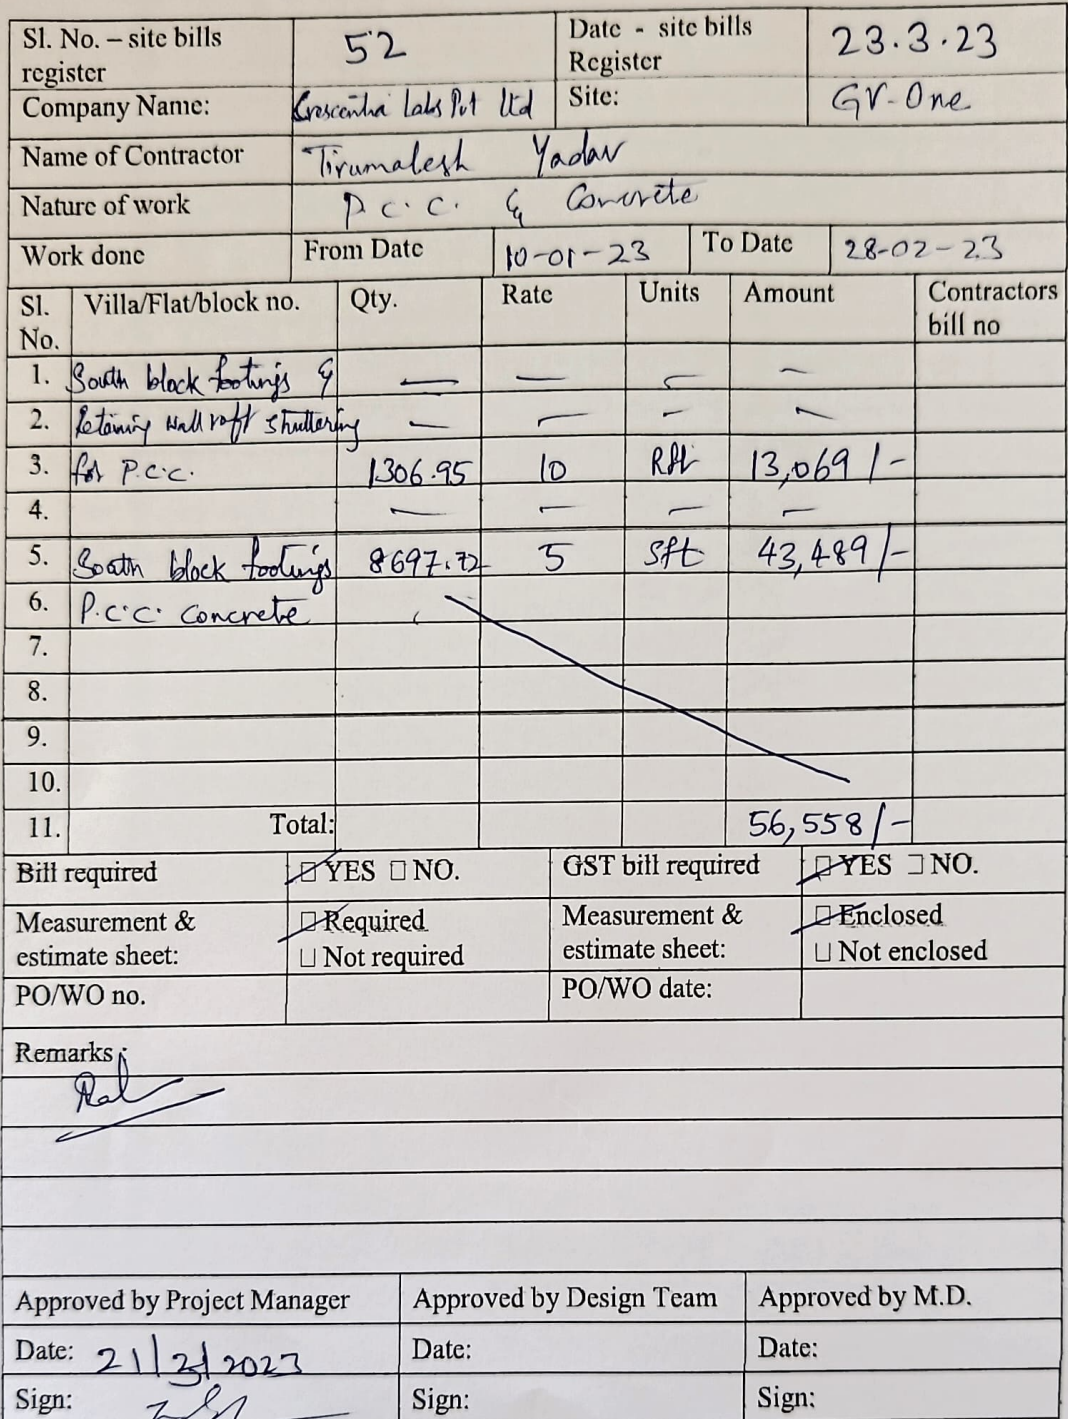 Sl. No. – site bills register 52 Date - site bills Register 23.3.23
Company Name: Crescentia Labs Pvt Ltd Site: GV-One
Name of Contractor Tirumalesh Yadav
Nature of work P.C.C. & Concrete
Work done From Date 10-01-23 To Date 28-02-23
Sl. No. Villa/Flat/block no. Qty. Rate Units Amount Contractors bill no
1. South block footings & — — — —
2. Retaining wall raft shuttering — — — —
3. for P.C.C. 1306.95 10 Rft 13,069/-
4. — — — —
5. South block footings 8697.72 5 Sft 43,489/-
6. P.C.C. Concrete
7.
8.
9.
10.
11. Total: 56,558/-
Bill required ☑ YES ☐ NO. GST bill required ☑ YES ☐ NO.
Measurement & estimate sheet: ☑ Required ☐ Not required Measurement & estimate sheet: ☑ Enclosed ☐ Not enclosed
PO/WO no. PO/WO date:
Remarks:
Approved by Project Manager Approved by Design Team Approved by M.D.
Date: 21/3/2023 Date: Date:
Sign: Sign: Sign: